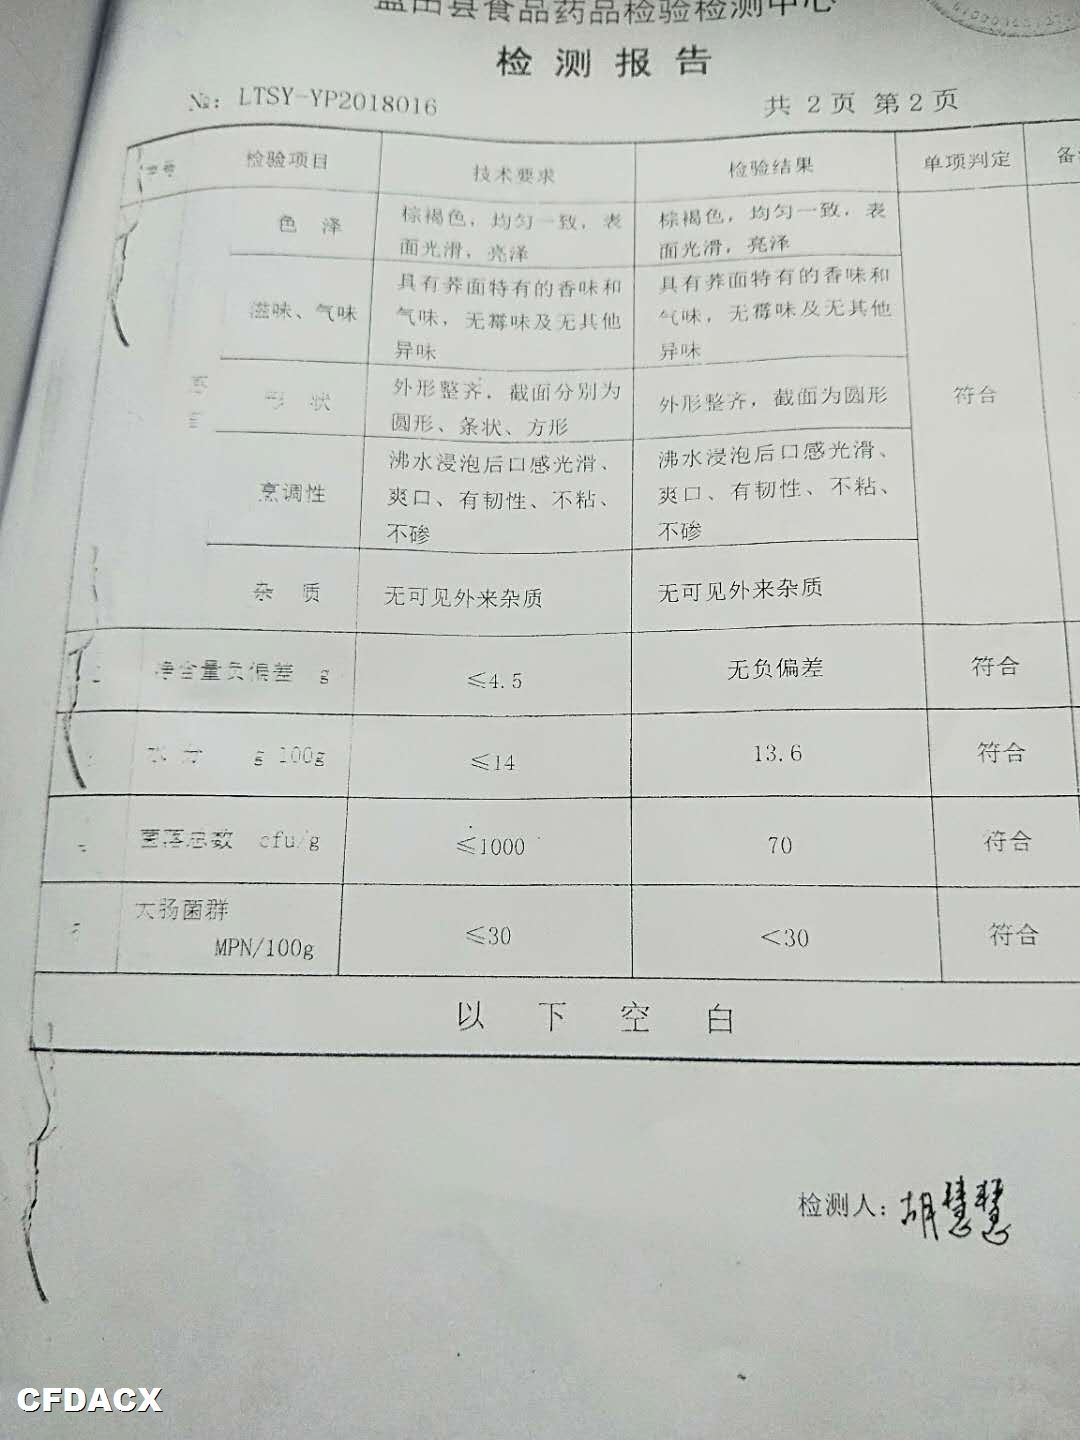 县食品药品检验检测中心
检测报告
№: LTSY-YP2018016
共 2 页 第 2 页
检验项目 技术要求 检验结果 单项判定
色 泽
棕褐色，均匀一致，表
面光滑，亮泽
棕褐色，均匀一致，表
面光滑，亮泽
滋味、气味
具有荞面特有的香味和
气味，无霉味及无其他
异味
具有荞面特有的香味和
气味，无霉味及无其他
异味
形 状
外形整齐，截面分别为
圆形、条状、方形
外形整齐，截面为圆形
符合
烹调性
沸水浸泡后口感光滑、
爽口、有韧性、不粘、
不碜
沸水浸泡后口感光滑、
爽口、有韧性、不粘、
不碜
杂 质 无可见外来杂质 无可见外来杂质
净含量负偏差 g ≤4.5 无负偏差 符合
水 分 g 100g ≤14 13.6 符合
菌落总数 cfu/g ≤1000 70 符合
大肠菌群
MPN/100g ≤30 <30 符合
以 下 空 白
检测人：胡慧慧
CFDACX